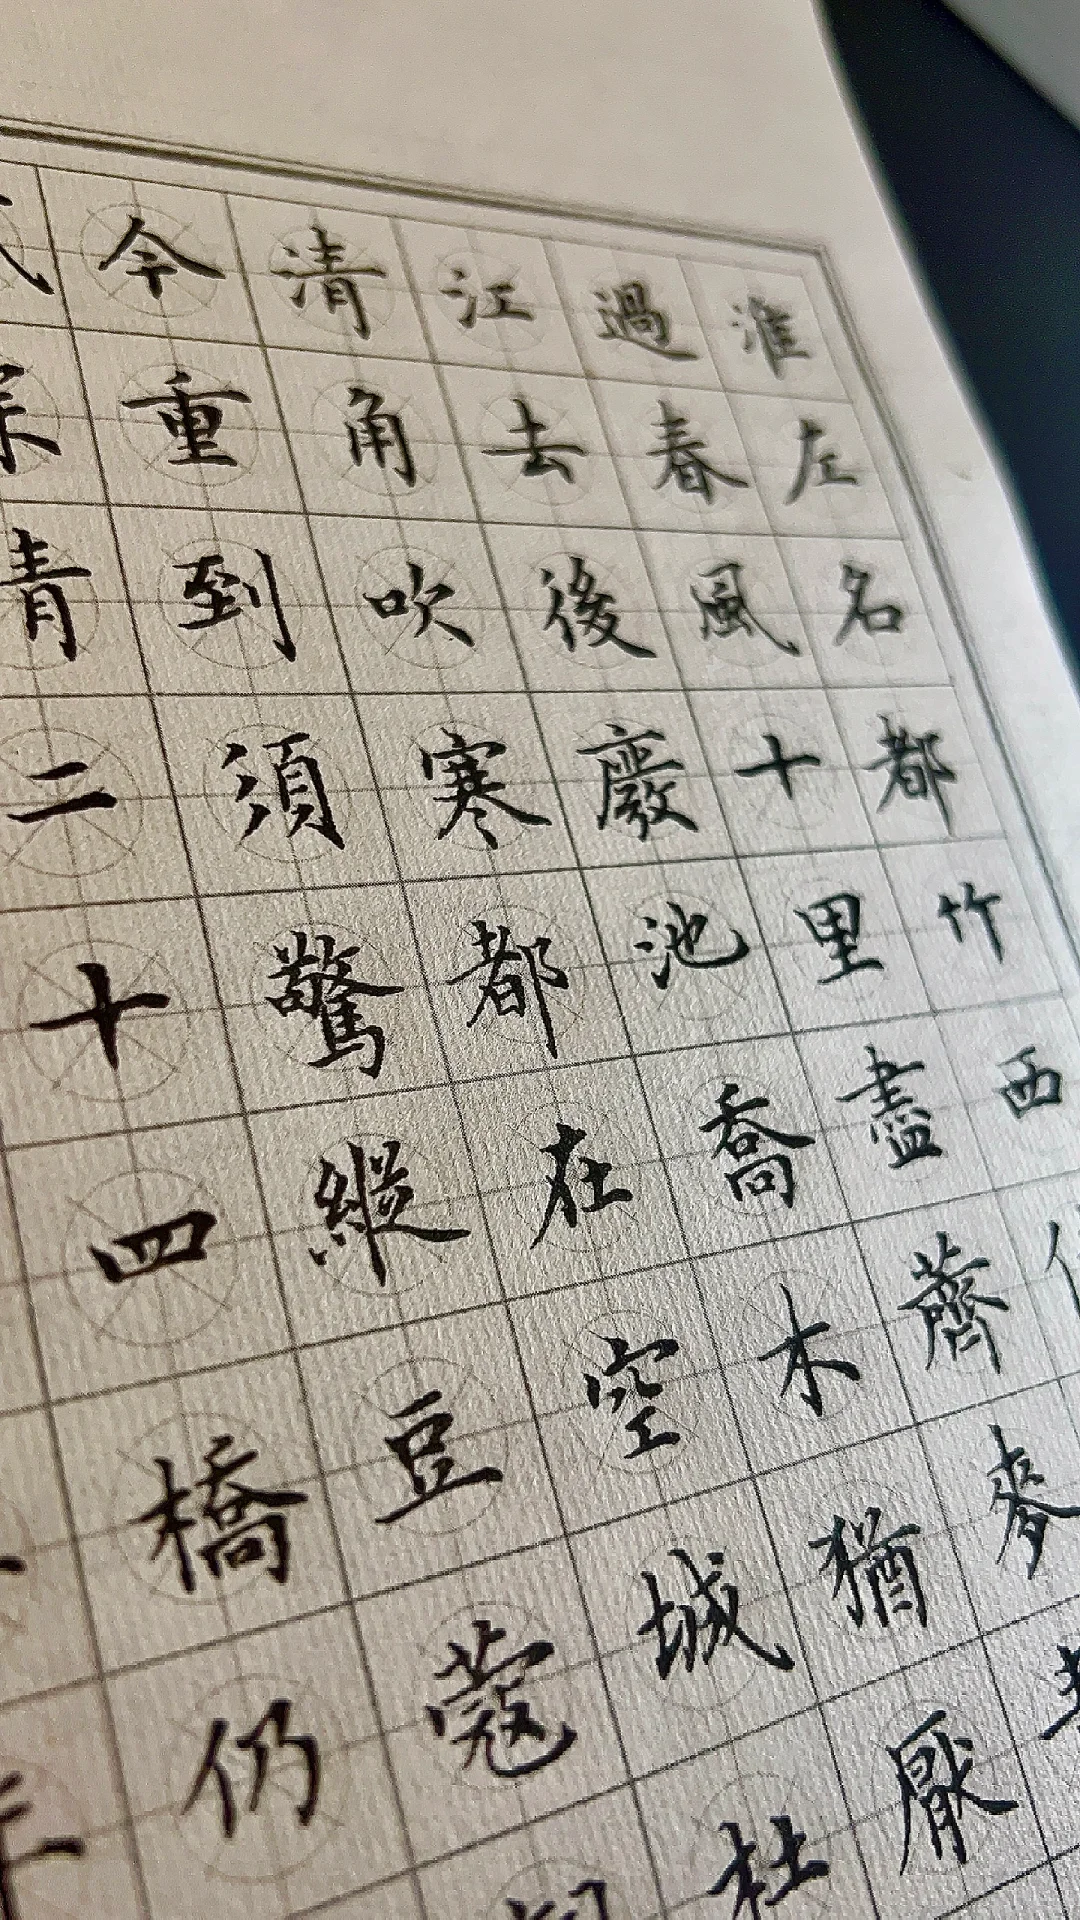 淮左名都竹西
過春風十里盡薺麥
江去後廢池喬木猶厭
清角吹寒都在空城杜
今重到須驚縱豆蔻
二十四橋仍